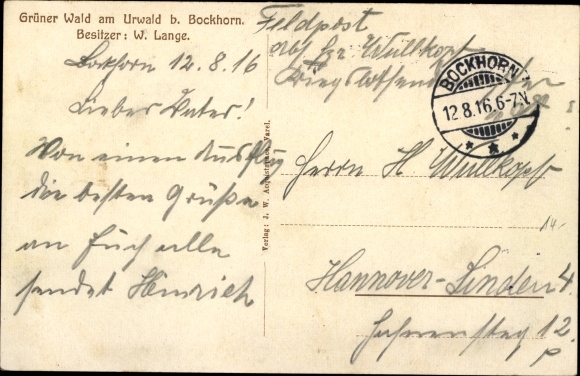 Grüner Wald am Urwald b. Bockhorn.
Besitzer: W. Lange.
Bockhorn 12.8.16
Lieber Vater!
Von einem Ausflug
die besten Grüße
an Euch alle
sendet Hinrich
Verlag: J. W. Acquistapace, Varel.
Feldpost
Abs. Gr. Wulkopf
BOCKHORN
12.8.16.6-7N.
Herrn H Wulkopf
14.
Hannover-Linden 4.
12.